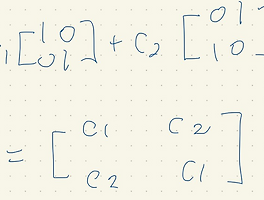 1 [1 0 0 1] + C2 [0 1 1 0]
= [C1 C2 C2 C1]